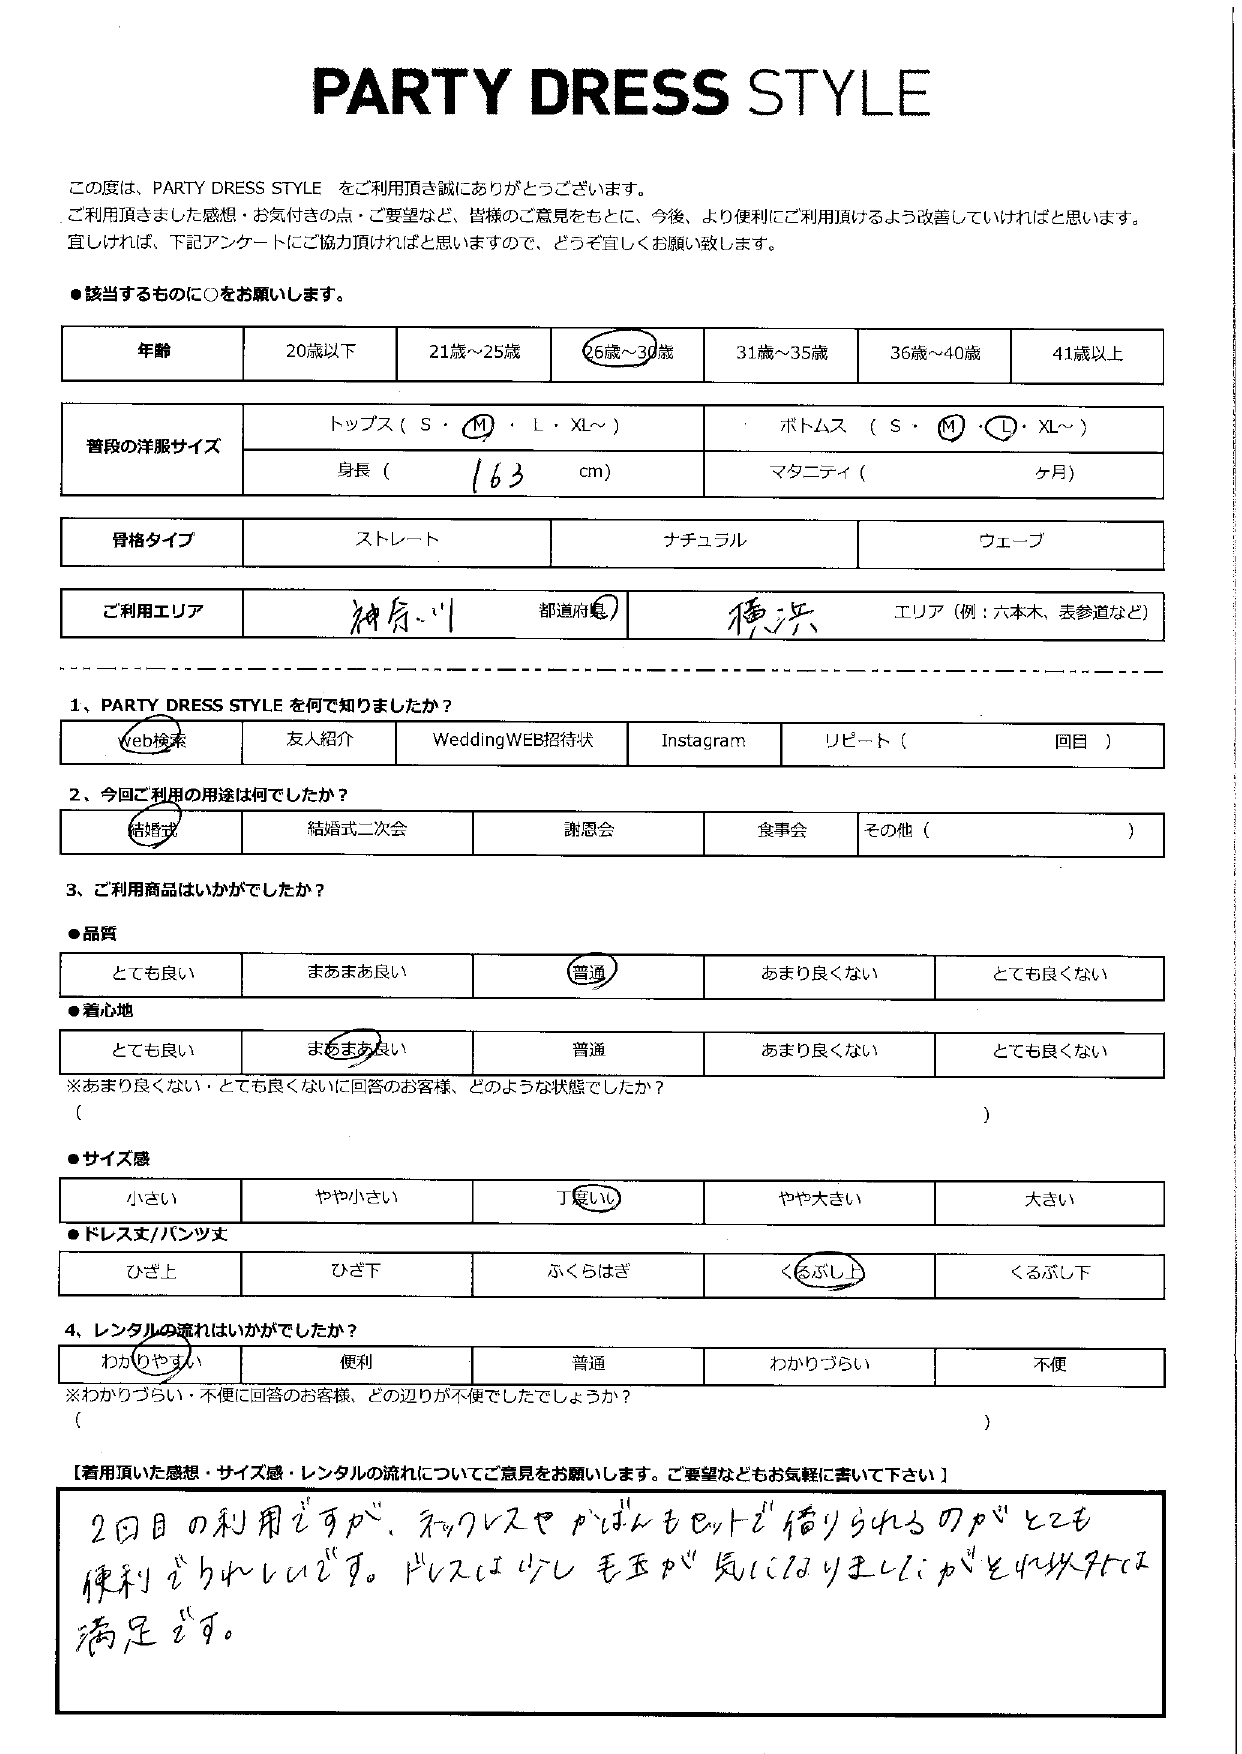 PARTY DRESS STYLE
この度は、PARTY DRESS STYLE をご利用頂き誠にありがとうございます。
ご利用頂きました感想・お気付きの点・ご要望など、皆様のご意見をもとに、今後、より便利にご利用頂けるよう改善していければと思います。
宜しければ、下記アンケートにご協力頂ければと思いますので、どうぞ宜しくお願い致します。
●該当するものに○をお願いします。
年齢 20歳以下 21歳～25歳 26歳～30歳 31歳～35歳 36歳～40歳 41歳以上
普段の洋服サイズ トップス ( S ・ M ・ L ・ XL～ ) ボトムス ( S ・ M ・ L ・ XL～ )
身長 ( 163 cm) マタニティ ( ヶ月)
骨格タイプ ストレート ナチュラル ウェーブ
ご利用エリア 神奈川 都道府県 横浜 エリア（例：六本木、表参道など）
1、PARTY DRESS STYLE を何で知りましたか？
web検索 友人紹介 WeddingWEB招待状 Instagram リピート ( 回目 )
2、今回ご利用の用途は何でしたか？
結婚式 結婚式二次会 謝恩会 食事会 その他 ( )
3、ご利用商品はいかがでしたか？
●品質
とても良い まあまあ良い 普通 あまり良くない とても良くない
●着心地
とても良い まあまあ良い 普通 あまり良くない とても良くない
※あまり良くない・とても良くないに回答のお客様、どのような状態でしたか？
( )
●サイズ感
小さい やや小さい 丁度いい やや大きい 大きい
●ドレス丈/パンツ丈
ひざ上 ひざ下 ふくらはぎ くるぶし上 くるぶし下
4、レンタルの流れはいかがでしたか？
わかりやすい 便利 普通 わかりづらい 不便
※わかりづらい・不便に回答のお客様、どの辺りが不便でしたでしょうか？
( )
【着用頂いた感想・サイズ感・レンタルの流れについてご意見をお願いします。ご要望などもお気軽に書いて下さい】
2回目の利用ですが、ネックレスやかばんもセットで借りられるのがとても
便利でうれしいです。ドレスは少し毛玉が気になりましたがそれ以外は
満足です。